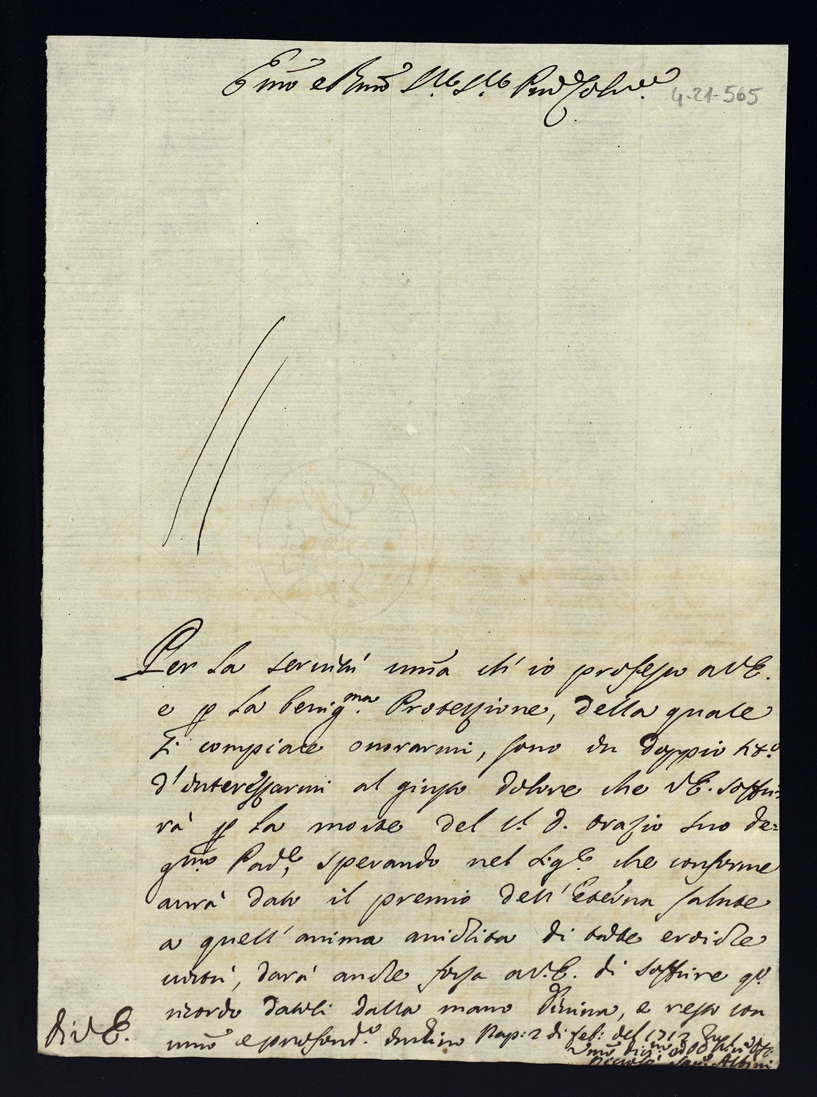 Em̃o e Rm̃o Sig.re Sig.re Pad.e Col.mo
4-21-565
Per la servitù um̃a ch'io professo a V.E.
e p la benig.ma Protezzione, della quale
si compiace onorarmi, sono in doppio tit.o
d'interessarmi al giusto dolore che V.E. soffri-
rà p la morte del S.r D. Orazio suo de=
gm̃o Pad.e, sperando nel Sig.e che conforme
avrà dato il premio dell'Eterna salute
a quell'anima arricchita di tutte eroiche
virtù, darà anche forza a V.E. di soffrire q.o
ricordo datoli dalla mano Divina, e resto con
um̃o e profond.o inchino Nap: 2 di feb: del 1713
Di V.E.